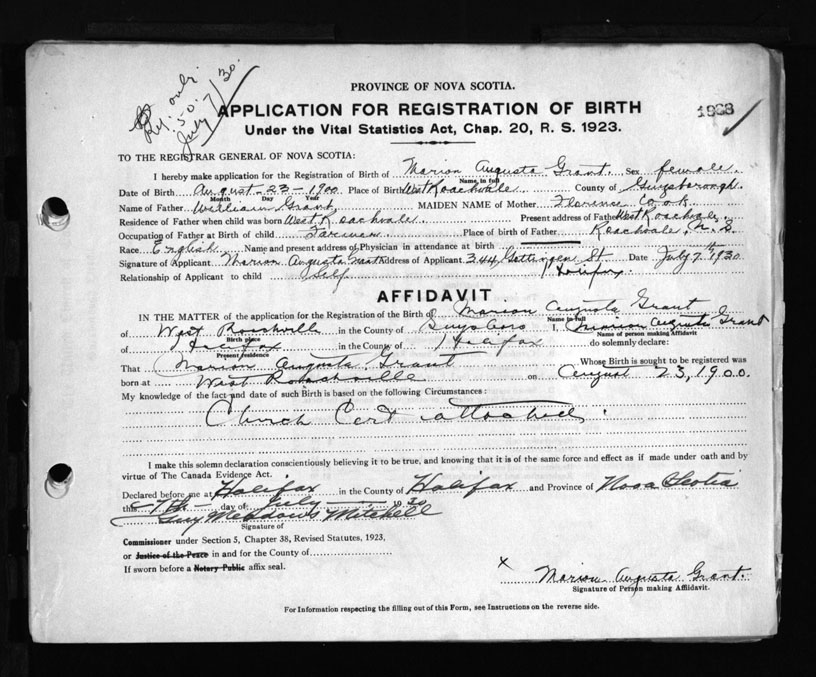 only.
July 7/30.
PROVINCE OF NOVA SCOTIA.
APPLICATION FOR REGISTRATION OF BIRTH
Under the Vital Statistics Act, Chap. 20, R. S. 1923.
TO THE REGISTRAR GENERAL OF NOVA SCOTIA:
I hereby make application for the Registration of Birth of Marion Augusta Grant. Sex female.
Name in full
Date of Birth August-23-1900 Place of Birth West Roachvale County of Guysborough.
Month Day Year
Name of Father William Grant. MAIDEN NAME of Mother Florence Cook
Residence of Father when child was born West Roachvale. Present address of Father West Roachvale.
Occupation of Father at Birth of child Farmer Place of birth of Father Roachvale, N.S.
Race English Name and present address of Physician in attendance at birth
Signature of Applicant Marion Augusta Grant Address of Applicant 344 Gottingen St Date July 7th 1930
Halifax.
Relationship of Applicant to child Self
AFFIDAVIT.
IN THE MATTER of the application for the Registration of the Birth of Marion Augusta Grant
Name in full
of West Roachville in the County of Guysboro I, Marion Augusta Grant
Birth place Name of person making Affidavit
of Halifax in the County of Halifax do solemnly declare:
Present residence
That Marion Augusta Grant Whose Birth is sought to be registered was
born at West Roachville on August 23, 1900.
My knowledge of the fact and date of such Birth is based on the following Circumstances:
Church Cert attached.
I make this solemn declaration conscientiously believing it to be true, and knowing that it is of the same force and effect as if made under oath and by
virtue of The Canada Evidence Act.
Declared before me at Halifax in the County of Halifax and Province of Nova Scotia
this 7th day of July 1930
Guy Meadows Mitchell
Signature of
Commissioner under Section 5, Chapter 38, Revised Statutes, 1923,
or Justice of the Peace in and for the County of
If sworn before a Notary Public affix seal.
x Marion Augusta Grant.
Signature of Person making Affidavit.
For Information respecting the filling out of this Form, see Instructions on the reverse side.